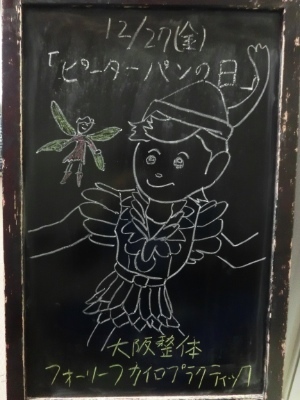 12/27(金)
「ピーターパンの日」
大阪整体
フォーリーフカイロプラクティック